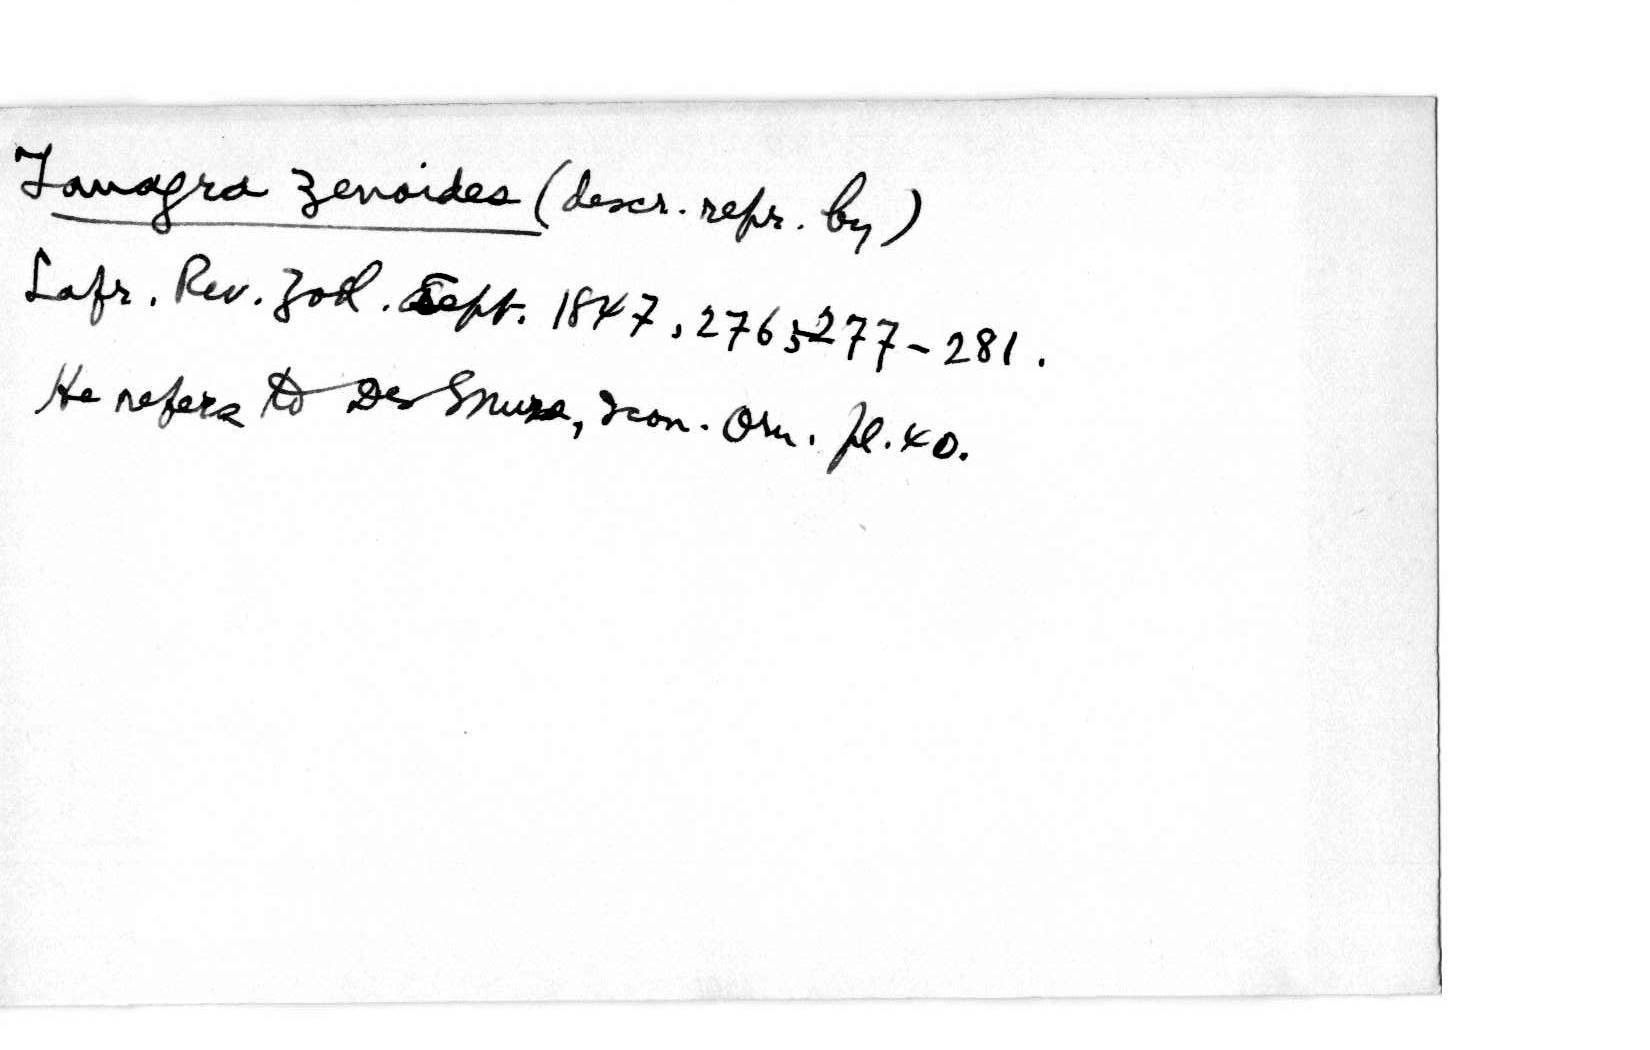 Tanagra zenoides (descr. repr. by)
Lafr. Rev. Zool. Sept. 1847, 276, 277-281.
He refers to Des Murs, Icon. Orn. pl. 40.